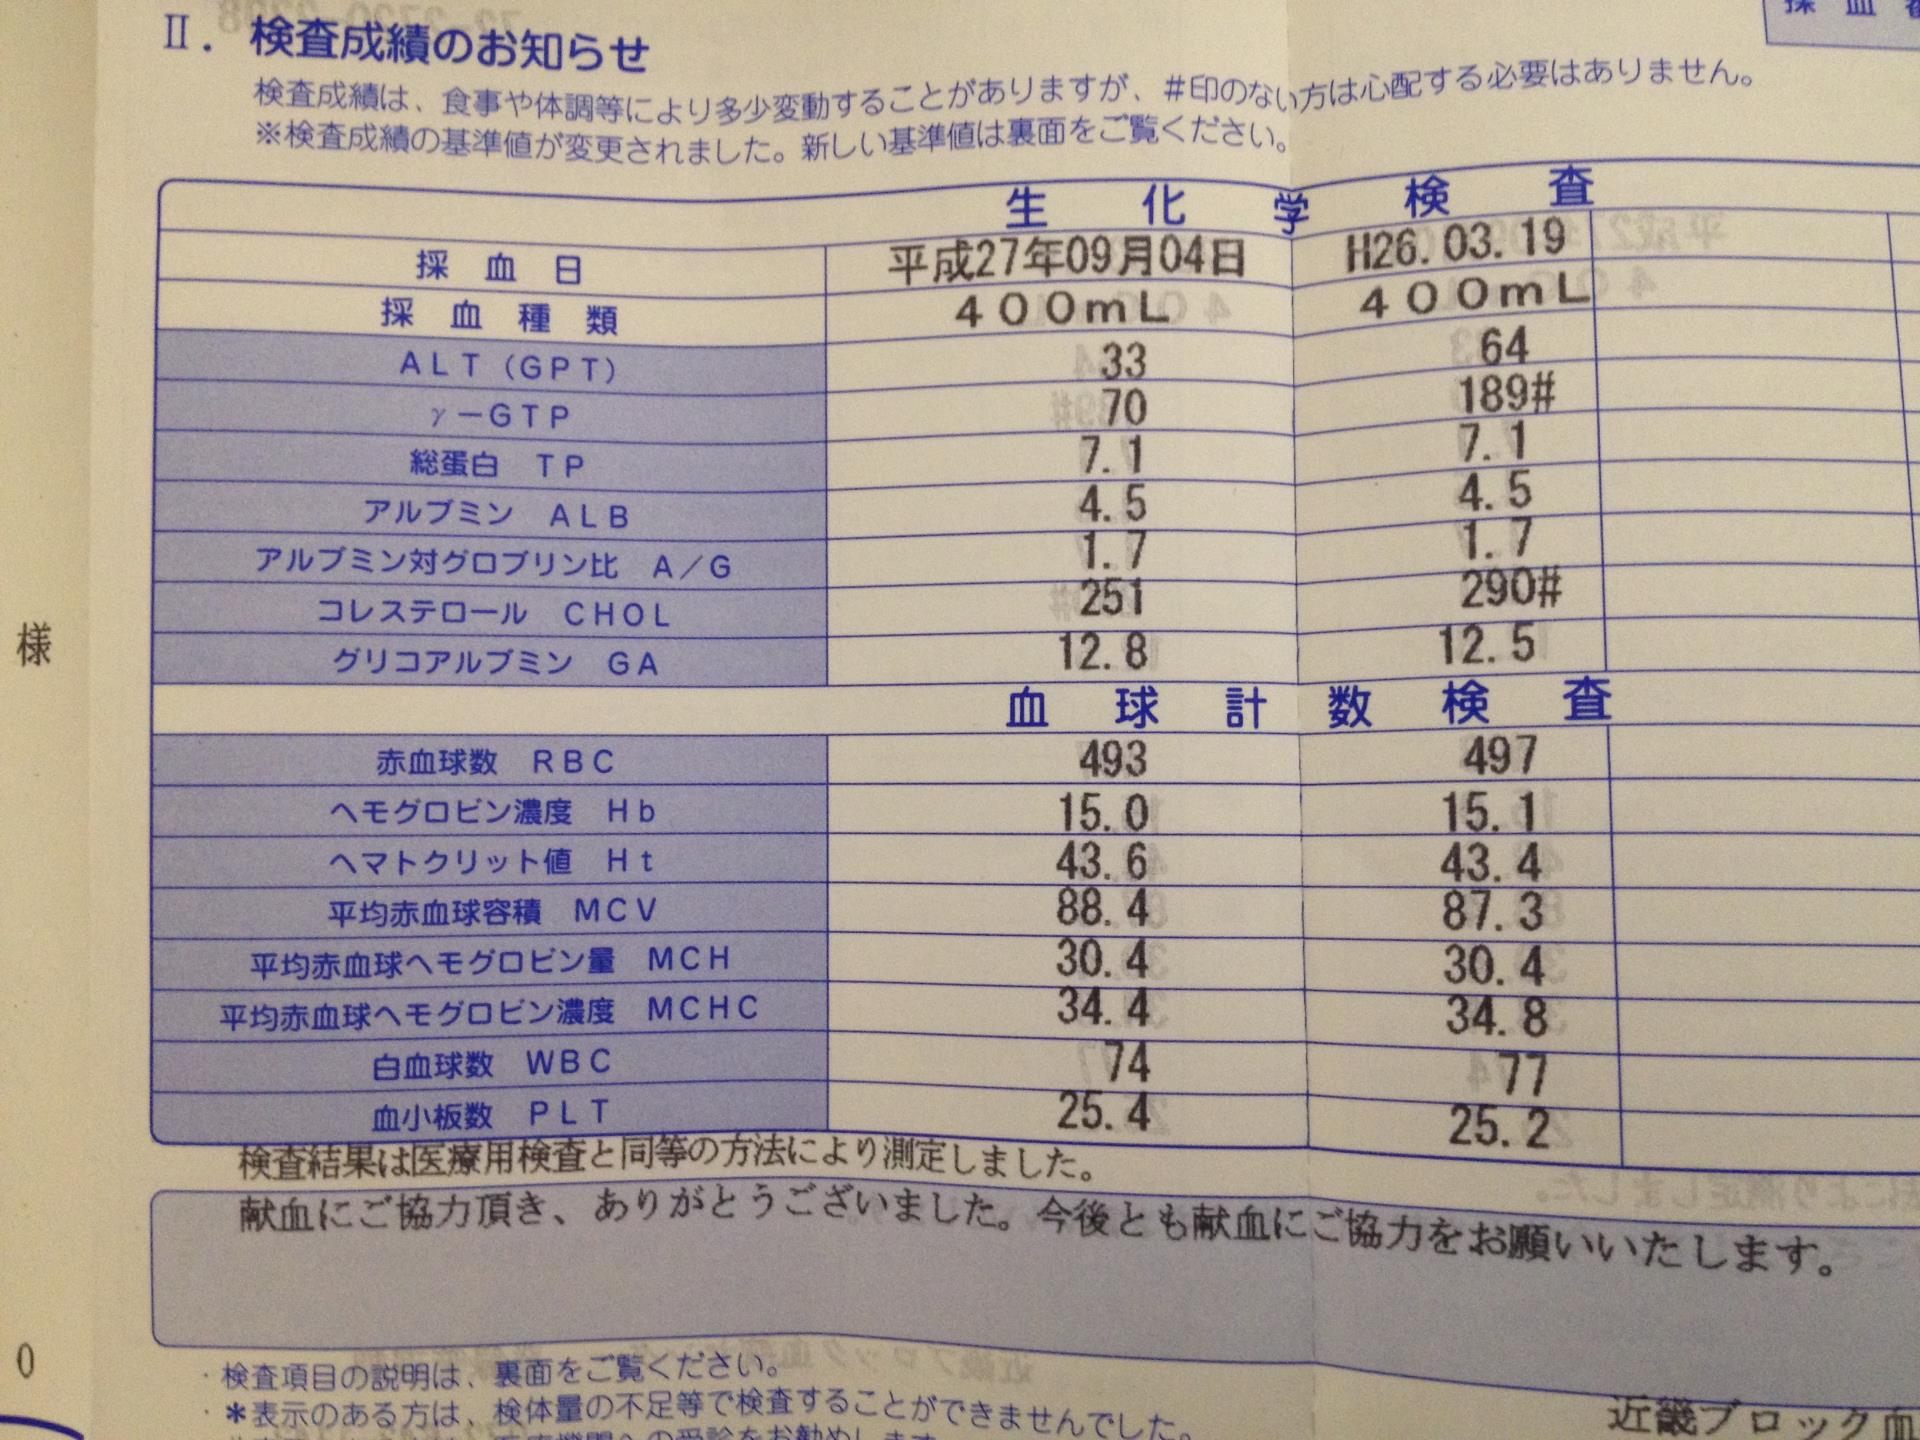 Ⅱ. 検査成績のお知らせ
採 血
検査成績は、食事や体調等により多少変動することがありますが、#印のない方は心配する必要はありません。
※検査成績の基準値が変更されました。新しい基準値は裏面をご覧ください。
生 化 学 検 査
採 血 日 平成27年09月04日 H26.03.19
採 血 種 類 400mL 400mL
ALT(GPT) 33 64
γ-GTP 70 189#
総蛋白 TP 7.1 7.1
アルブミン ALB 4.5 4.5
アルブミン対グロブリン比 A/G 1.7 1.7
コレステロール CHOL 251 290#
グリコアルブミン GA 12.8 12.5
様
血 球 計 数 検 査
赤血球数 RBC 493 497
ヘモグロビン濃度 Hb 15.0 15.1
ヘマトクリット値 Ht 43.6 43.4
平均赤血球容積 MCV 88.4 87.3
平均赤血球ヘモグロビン量 MCH 30.4 30.4
平均赤血球ヘモグロビン濃度 MCHC 34.4 34.8
白血球数 WBC 74 77
血小板数 PLT 25.4 25.2
検査結果は医療用検査と同等の方法により測定しました。
献血にご協力頂き、ありがとうございました。今後とも献血にご協力をお願いいたします。
0
・検査項目の説明は、裏面をご覧ください。
・*表示のある方は、検体量の不足等で検査することができませんでした。
近畿ブロック血